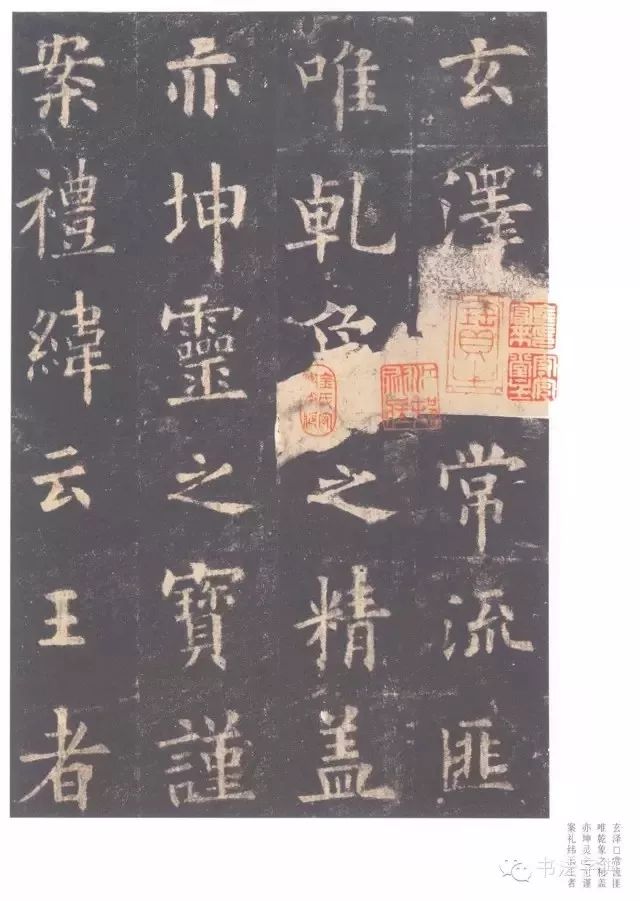 玄澤常流匪
唯乹象之精盖
亦坤靈之寶謹
案禮緯云王者
玄泽□常流匪
唯乾象之精盖
亦坤灵之谨
案礼纬王者
书法字